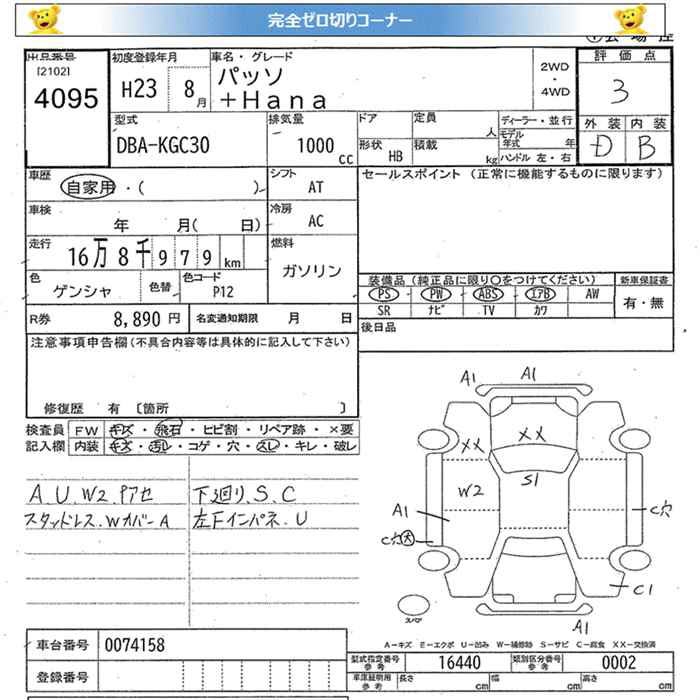 完全ゼロ切りコーナー
出品番号
[2102]
4095
初度登録年月
H23 8月
車名・グレード
パッソ
+Hana
2WD
・
4WD
評価点
3
外装 内装
D B
型式
DBA-KGC30
排気量
1000 cc
ドア
定員 人
形状 HB
積載 kg
ディーラー・並行
モデル年式 年
ハンドル 左・右
車歴
自家用・( )
シフト
AT
セールスポイント (正常に機能するものに限ります)
車検
年 月( 日)
冷房
AC
走行
16万8千979 km
燃料
ガソリン
色
ゲンシャ
色替
色コード
P12
装備品 (純正品に限り〇をつけてください)
PS PW ABS エアB AW
SR ナビ TV カワ
新車保証書
有・無
R券 8,890 円
名変通知期限 月 日
後日品
注意事項申告欄(不具合内容等は具体的に記入して下さい)
修復歴 有 〔箇所 〕
検査員 FW キズ・飛石・ヒビ割・リペア跡・×要
記入欄 内装 キズ・汚レ・コゲ・穴・スレ・キレ・破レ
A.U.W2.Pアセ
スタッドレス.Wカバー A
下廻り.S.C
左Fインパネ.U
A1
A1
XX
XX
W2
S1
A1
C穴
C穴大
C1
A1
スペア
A-キズ E-エクボ U-凹み W-補修跡 S-サビ C-腐食 XX-交換済
車台番号 0074158
登録番号
型式指定番号 参考 16440
類別区分番号 参考 0002
車庫証明用 参考 長さ cm 幅 cm 高さ cm